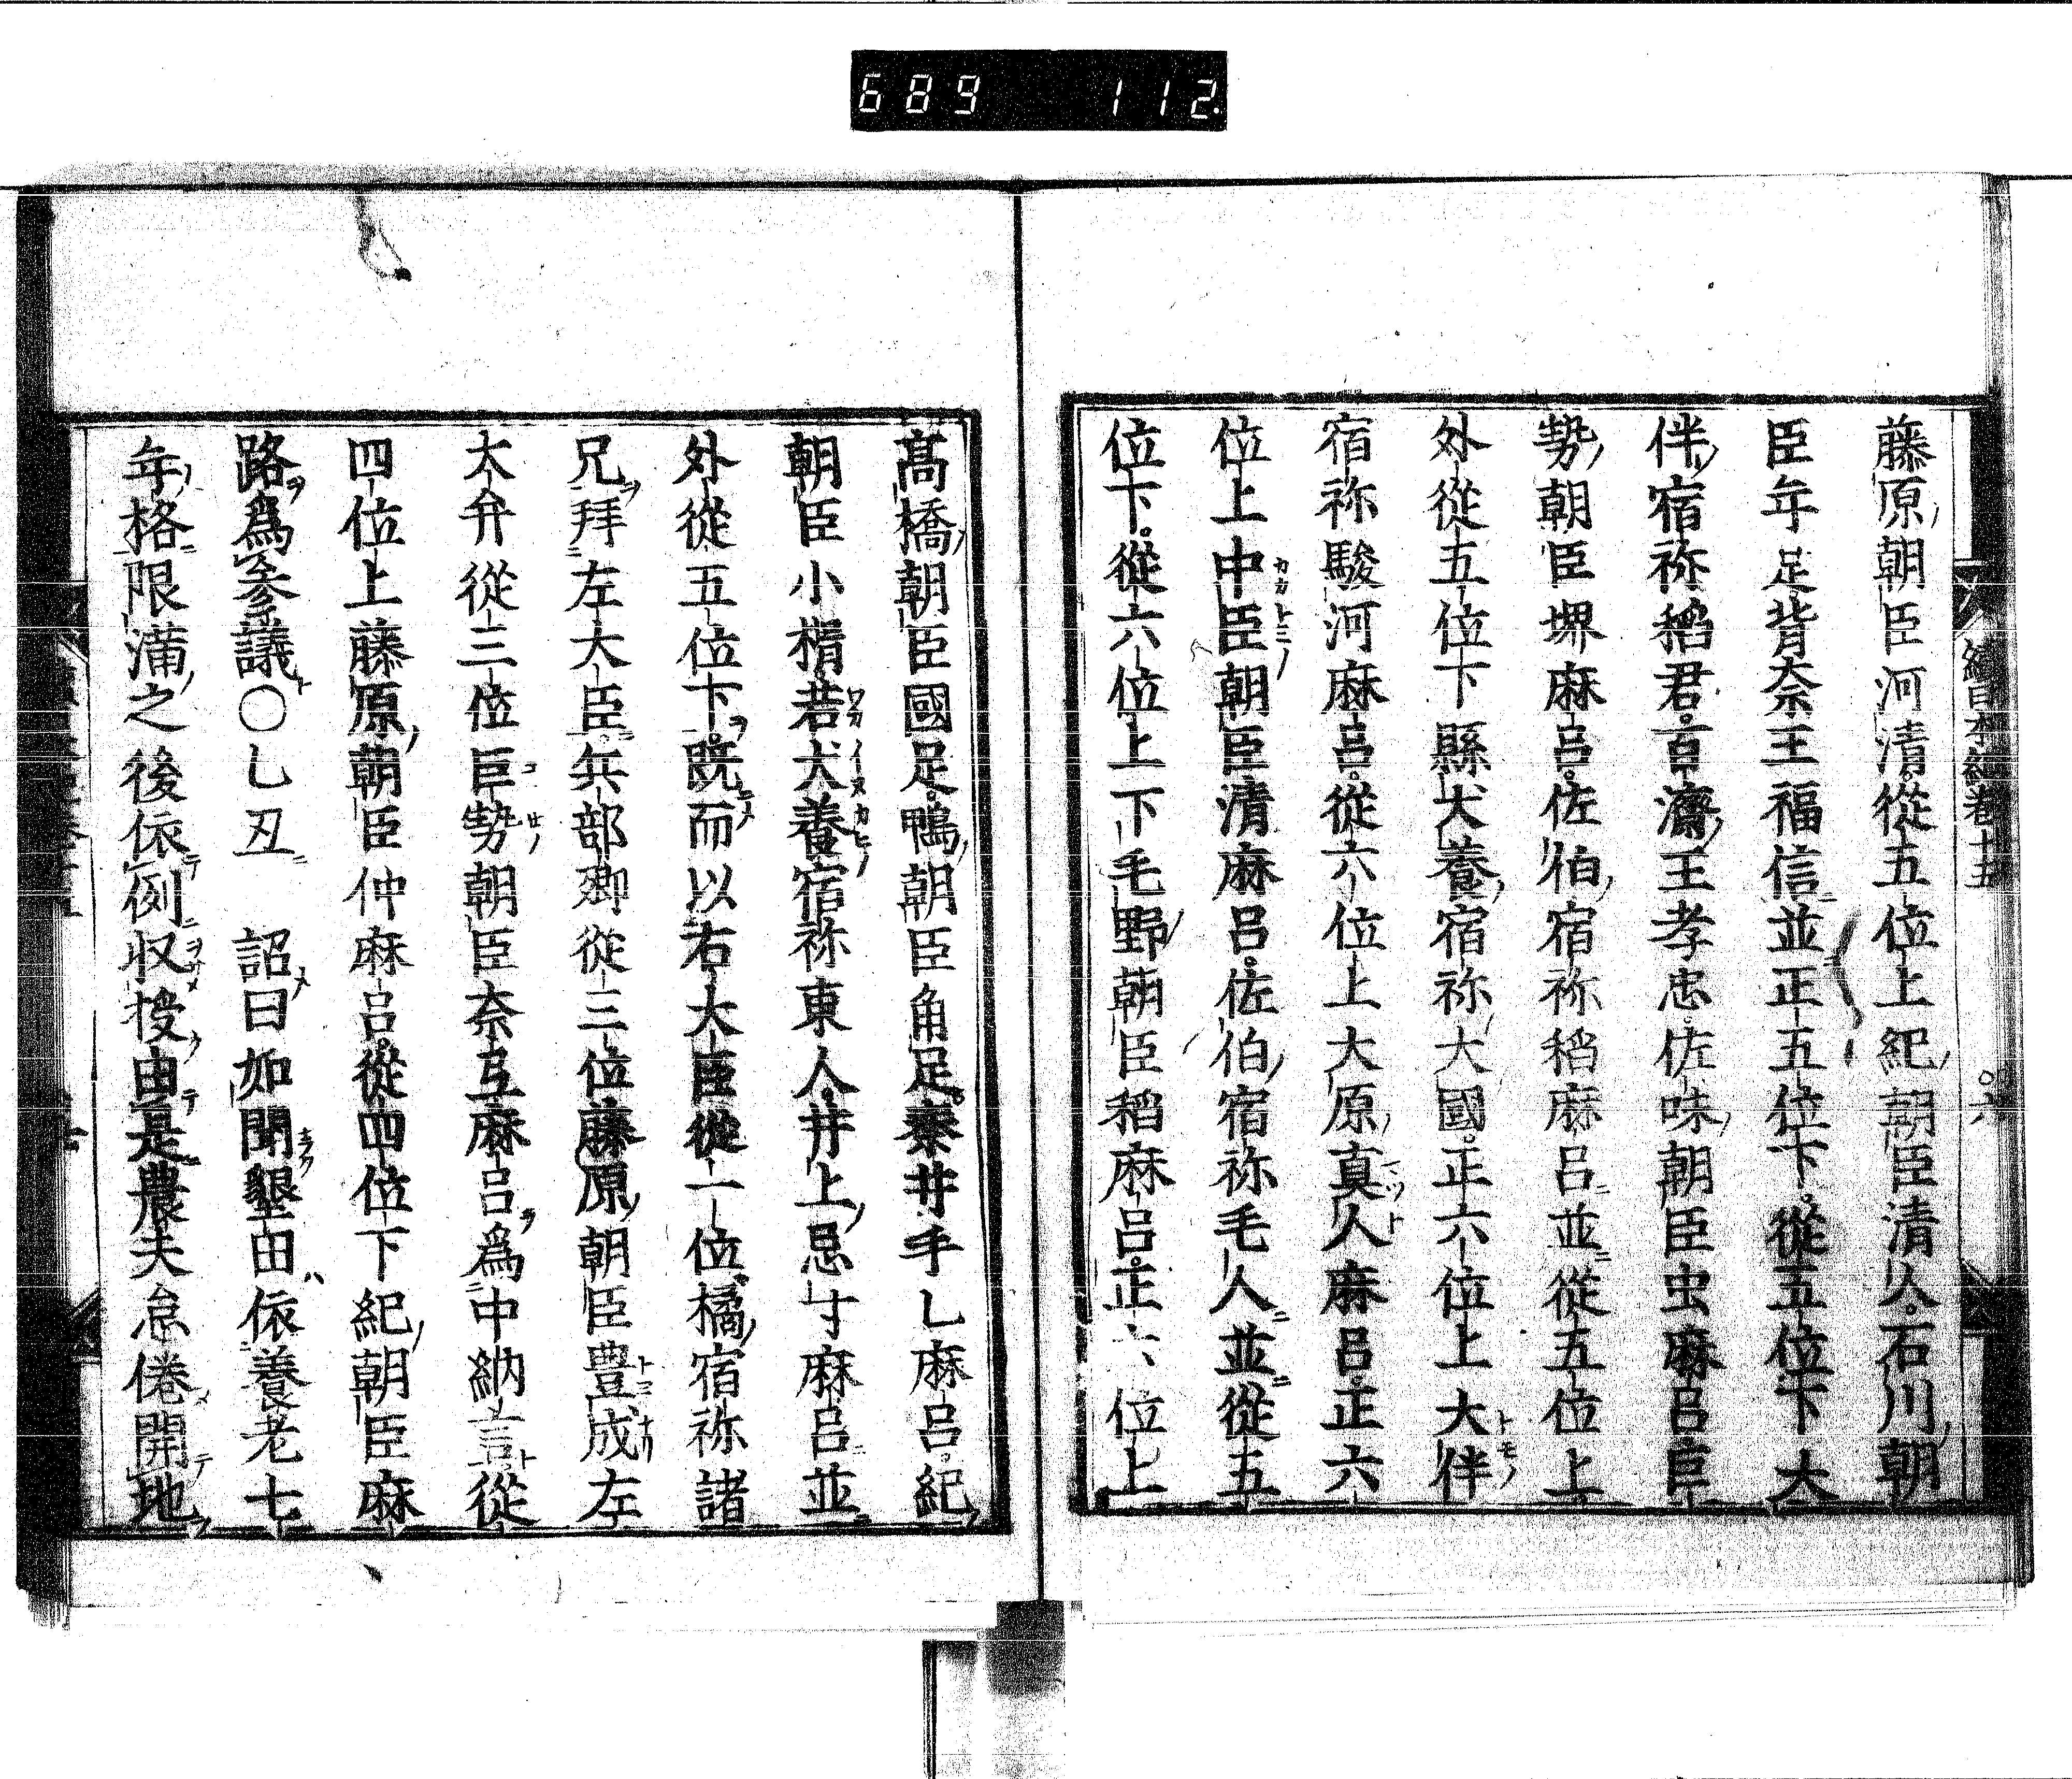 689 112
續日本紀卷十五 ○六
藤原朝臣河清。從五位上紀朝臣清人。石川朝
臣年足。背奈王福信並正五位下。從五位下大
伴宿祢稻君。百濟王孝忠。佐味朝臣虫麻呂。巨
勢朝臣堺麻呂。佐伯宿祢稻麻呂並從五位上
外從五位下縣犬養宿祢大國。正六位上大伴
宿祢駿河麻呂。從六位上大原真人麻呂。正六
位上中臣朝臣清麻呂。佐伯宿祢毛人並從五
位下。從六位上下毛野朝臣稻麻呂。正六位上
髙橋朝臣國足。鴨朝臣角足。秦井手乚麻呂。紀
朝臣小楫。若犬養宿祢東人。井上忌寸麻呂並
外從五位下。既而以右大臣從一位橘宿祢諸
兄拜左大臣。兵部卿從三位藤原朝臣豊成左
大弁從三位巨勢朝臣奈弖麻呂爲中納言從
四位上藤原朝臣仲麻呂。從四位下紀朝臣麻
路爲參議○乚丑 詔曰如聞墾田依養老七
年格限滿之後依例収授由是農夫怠倦開地